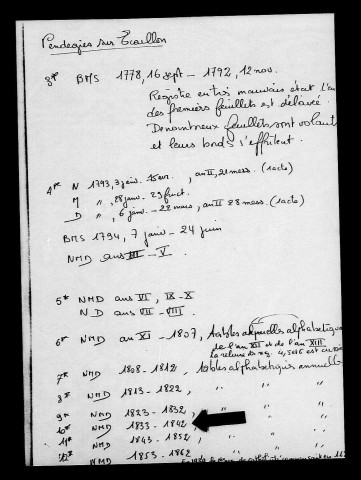 Pendegies sur Ecaillon
3* BMS 1778, 16 sept - 1792, 12 nov.
Registre en très mauvais état l'
des premiers feuillets est délavée.
De nombreux feuillets sont volants
et leurs bords s'effritent.
4* N 1793, 3 janv. , an II, 21 mess. (1 acte)
M " , 28 janv. - 29 fruct.
D " , 6 janv - 22 mais, an II 28 mess. (1 acte)
BMS 1794, 7 janv - 24 juin
NMD ans III - V.
5* NMD ans VI, IX-X
N D ans VII - VIII.
6* NMD an XI - 1807, Tables alphabétiques
de l'an XII et de l'an XIII
la reliure du reg. est
7* NMD 1808 - 1812, tables alphabétiques annuelles
8* NMD 1813 - 1822, " "
9* NMD 1823 - 1832, " "
10* NMD 1833 - 1842
11* NMD 1843 - 1852, " "
12* NMD 1853 - 1862